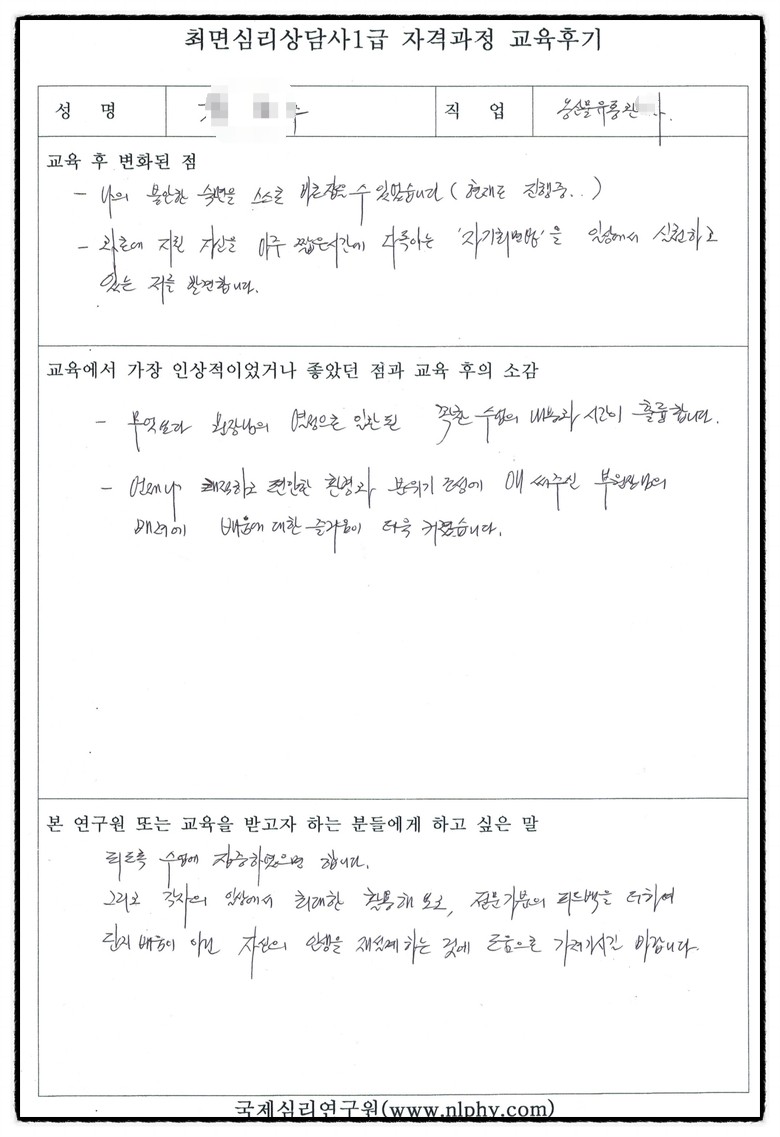 최면심리상담사1급 자격과정 교육후기
성 명
직 업 농산물유통관
교육 후 변화된 점
- 나의 불안한 숙면을 스스로 바로잡을 수 있었습니다 ( 현재도 진행중.. )
- 과로에 지친 자신을 아주 짧은시간에 다룩이는 '자기최면법'을 일상에서 실천하고
있는 저를 발견합니다.
교육에서 가장 인상적이었거나 좋았던 점과 교육 후의 소감
- 무엇보다 원장님의 열정으로 일관된 꽉찬 수업의 내용과 시간이 훌륭합니다.
- 언제나 쾌적하고 편안한 환경과 분위기 조성에 애 써주신 부원장님의
배려에 배움에 대한 즐거움이 더욱 커졌습니다.
본 연구원 또는 교육을 받고자 하는 분들에게 하고 싶은 말
되도록 수업에 집중하였으면 합니다.
그리고 각자의 일상에서 최대한 활용해 보고, 전문가분의 피드백을 더하여
단지 배움이 아닌 자신의 인생을 재설계하는 것에 도움으로 가져가시길 바랍니다.
국제심리연구원(www.nlphy.com)